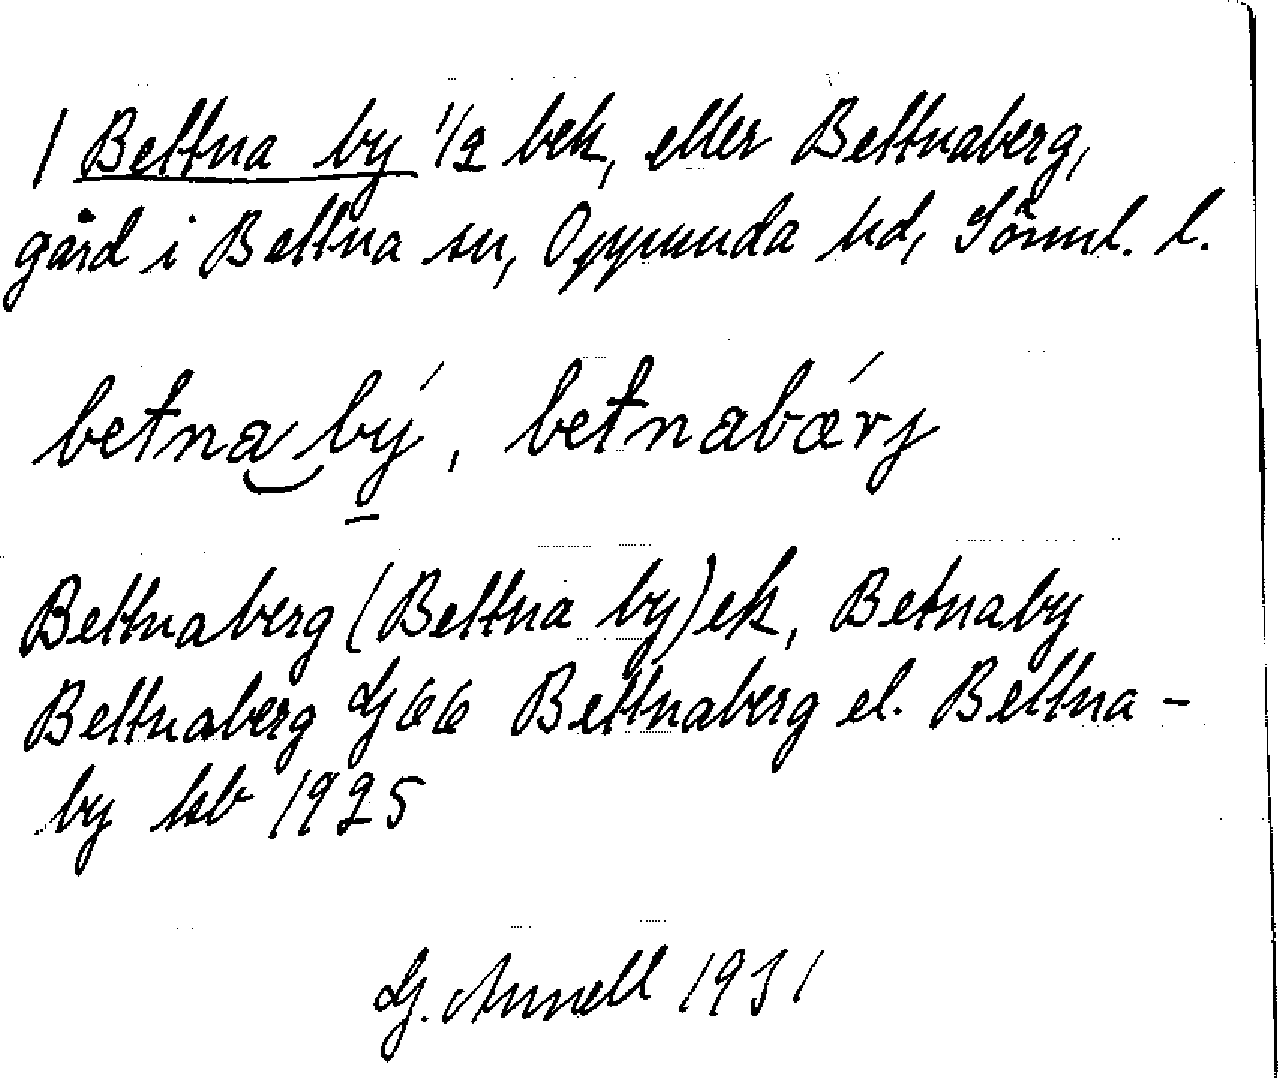 1 Bettna by 1/2 bek, eller Bettnaberg,
gård i Bettna sn, Oppunda hd, Sörml. l.
betna by´, betnabærj´
Bettnaberg (Bettna by) ek, Betnaby
Bettnaberg G66 Bettnaberg el. Bettna-
by kb 1925
G. Annell 1931